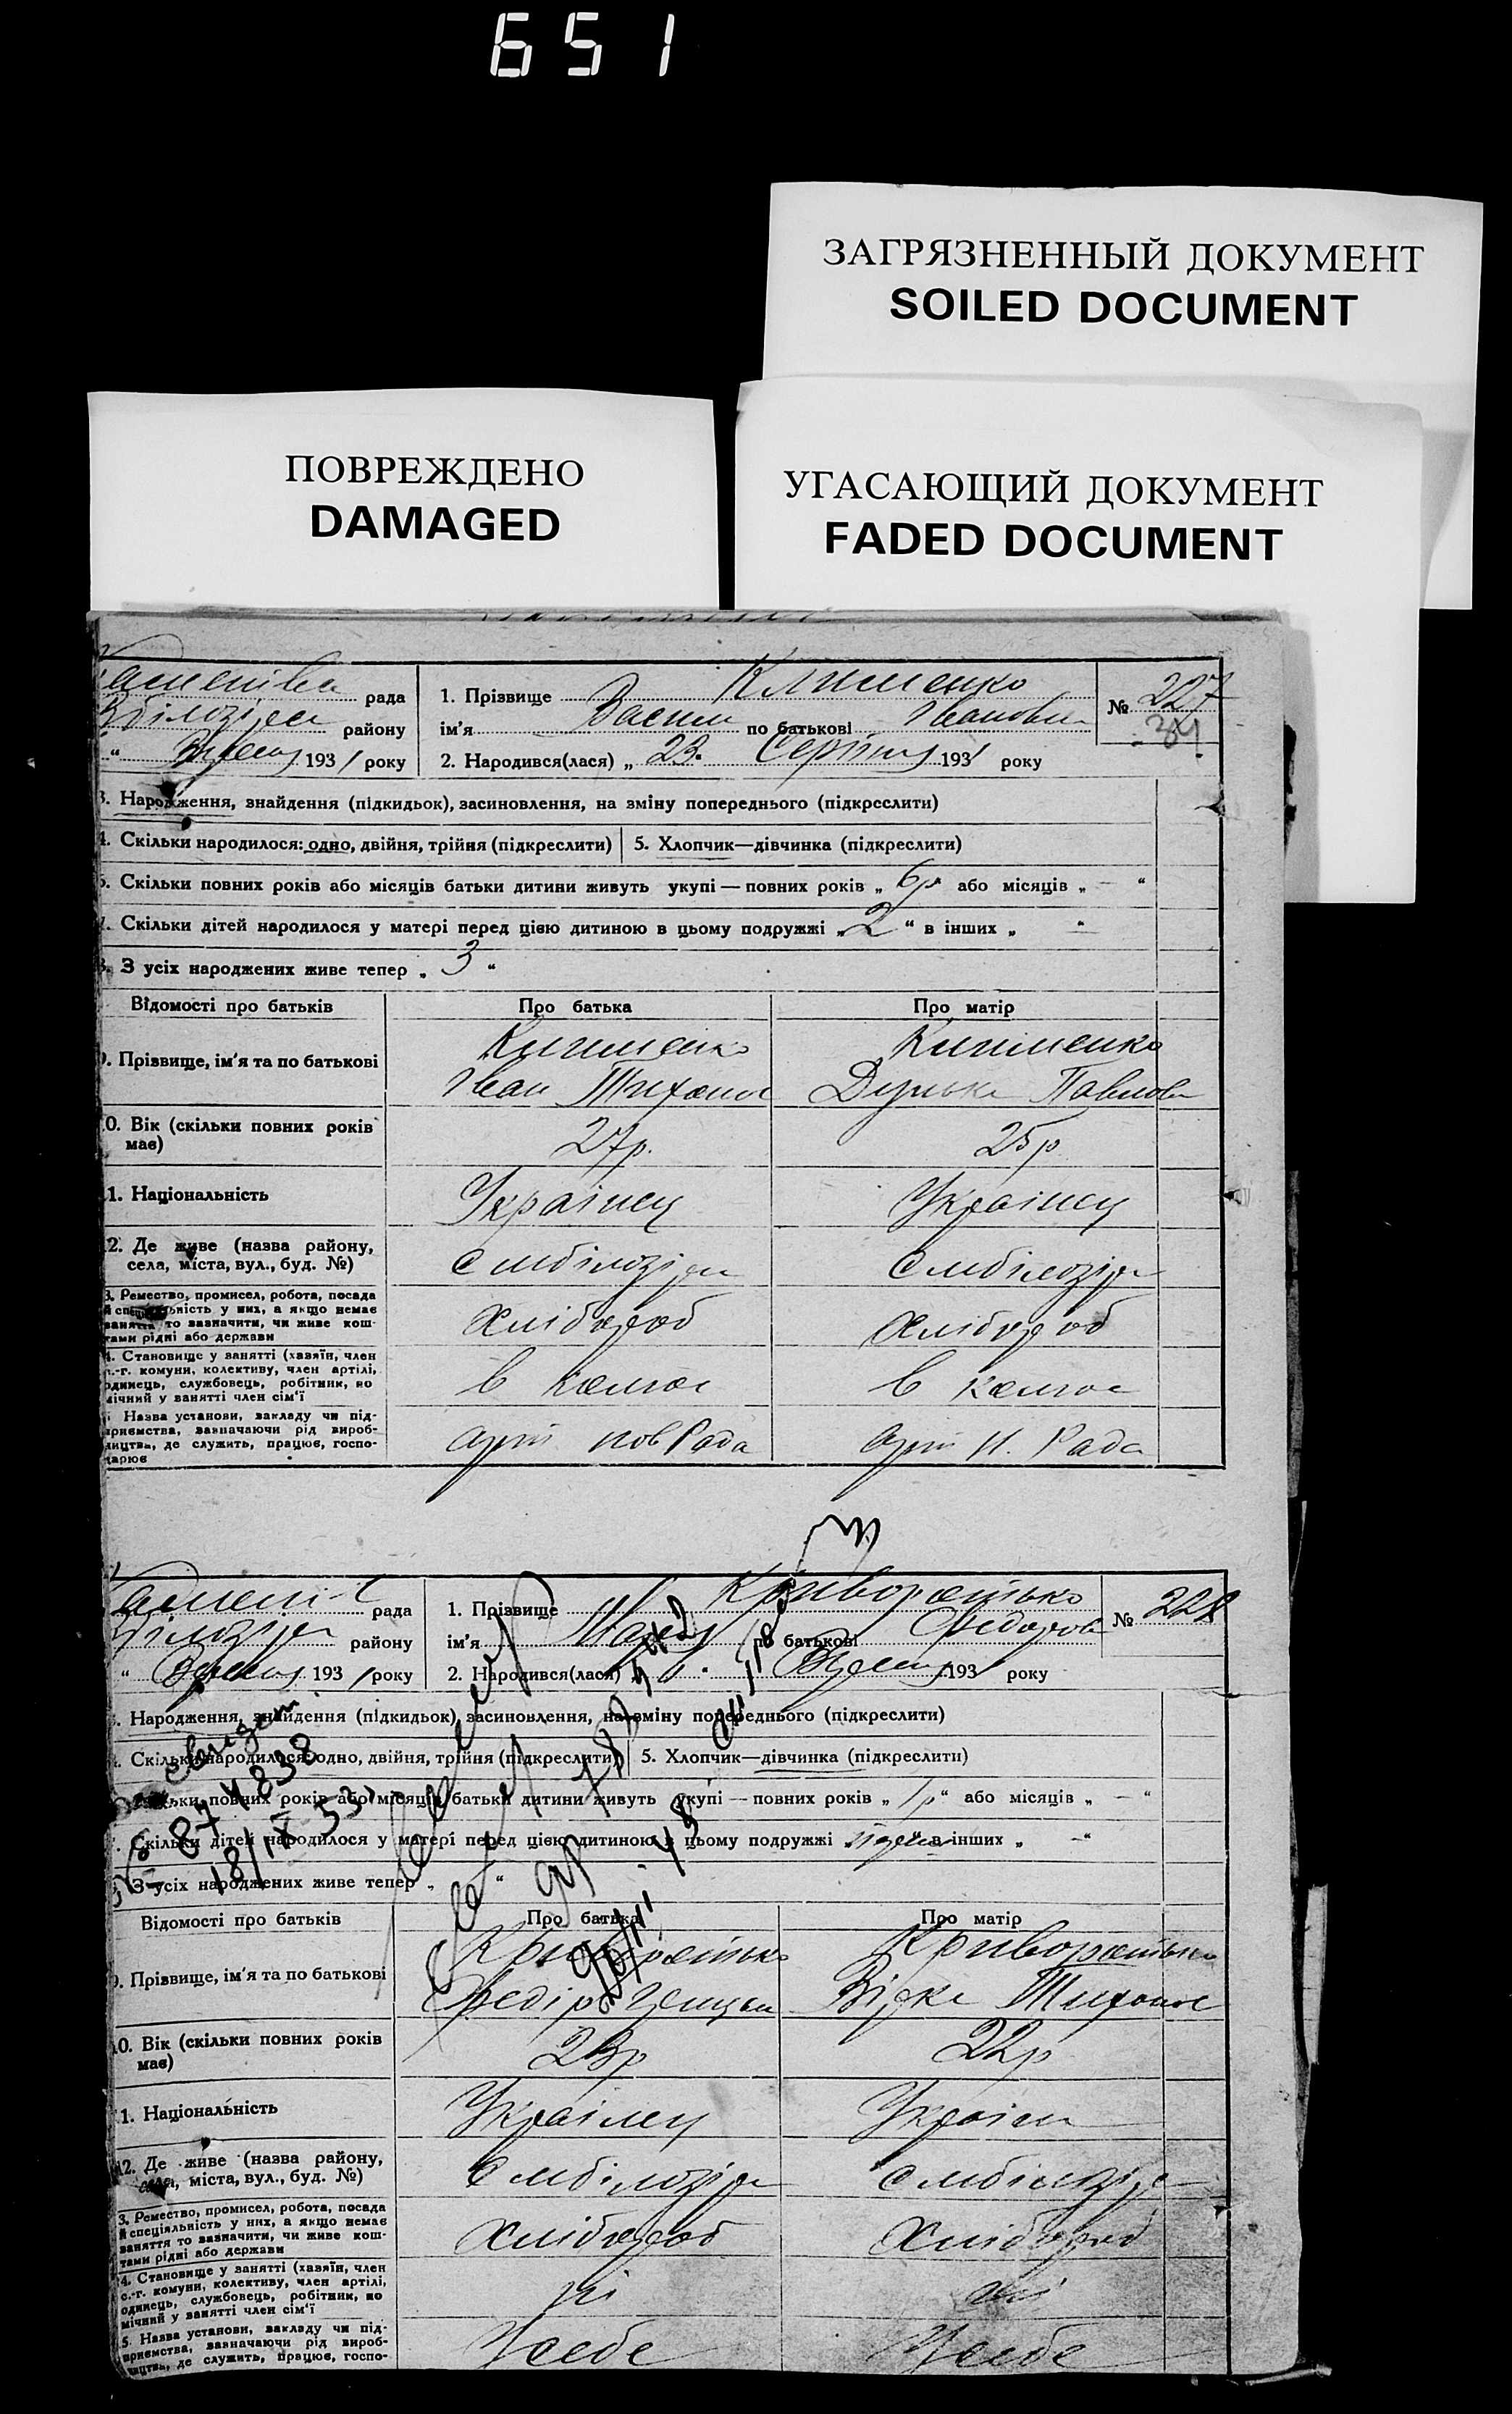 651
ЗАГРЯЗНЕННЫЙ ДОКУМЕНТ
SOILED DOCUMENT
ПОВРЕЖДЕНО
DAMAGED
УГАСАЮЩИЙ ДОКУМЕНТ
FADED DOCUMENT
рада
району
193 1 року
1. Прізвище Клименко
ім'я Васил по батькові Іванович
2. Народився(лася) „ 23. Серпня 1931 року
№ 227
34
3. Народження, знайдення (підкидьок), засиновлення, на зміну попереднього (підкреслити)
4. Скільки народилося: одно, двійня, трійня (підкреслити)
5. Хлопчик—дівчинка (підкреслити)
6. Скільки повних років або місяців батьки дитини живуть укупі — повних років „ 6р “ або місяців „ — “
7. Скільки дітей народилося у матері перед цією дитиною в цьому подружжі „ 2 “ в інших „ — “
8. З усіх народжених живе тепер „ 3 “
Відомості про батьків
Про батька
Про матір
9. Прізвище, ім'я та по батькові
Клименко
Іван Тихонов
Клименко
Павлов
10. Вік (скільки повних років має)
27р.
25р
11. Національність
Українец
Українец
12. Де живе (назва району, села, міста, вул., буд. №)
Смбілозіря
Смбілозіря
3. Ремество, промисел, робота, посада
й спеціяльність у них, а якщо немає
заняття то зазначити, чи живе кош-
тами рідні або держави
Хлібороб
Хлібороб
4. Становище у занятті (хазяїн, член
с.-г. комуни, колективу, член артілі,
одинець, службовець, робітник, по
мічний у занятті член сім'ї
в колгос
в колгос
5 Назва установи, закладу чи під-
приємства, зазначаючи рід вироб-
ництва, де служить, працює, госпо-
дарює
арт нов Рада
арт Н. Рада
рада
району
193 1 року
1. Прізвище Криворотько
ім'я по батькові Федоров
2. Народився(лася) 1. 193 року
№ 228
3. Народження, знайдення (підкидьок), засиновлення, на зміну попереднього (підкреслити)
4. Скільки народилося: одно, двійня, трійня (підкреслити)
5. Хлопчик—дівчинка (підкреслити)
Скільки повних років або місяців батьки дитини живуть укупі — повних років „ 1р “ або місяців „ — “
7. Скільки дітей народилося у матері перед цією дитиною в цьому подружжі „ “ в інших „ — “
З усіх народжених живе тепер „ “
№ 874838
18/IX 53
Відомості про батьків
Про батька
Про матір
9. Прізвище, ім'я та по батькові
Криворотько
Федір
Криворотько
Вірка Тихонов
10. Вік (скільки повних років має)
23р
22р
11. Національність
Українец
Україн
12. Де живе (назва району, села, міста, вул., буд. №)
Смбілозіря
Смбілозіря
3. Ремество, промисел, робота, посада
й спеціяльність у них, а якщо немає
заняття то зазначити, чи живе кош-
тами рідні або держави
Хлібороб
Хлібороб
4. Становище у занятті (хазяїн, член
с.-г. комуни, колективу, член артілі,
одинець, службовець, робітник, по
мічний у занятті член сім'ї
5. Назва установи, закладу чи під-
приємства, зазначаючи рід вироб-
ництва, де служить, працює, госпо-
Усебе
Усебе